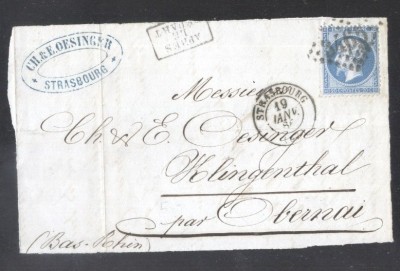 CH. & E. OESINGER
STRASBOURG
APRÈS
STRASBOURG
19
JANV.
Messieurs
Ch. & E. Oesinger
Klingenthal
par Obernai
(Bas-Rhin)